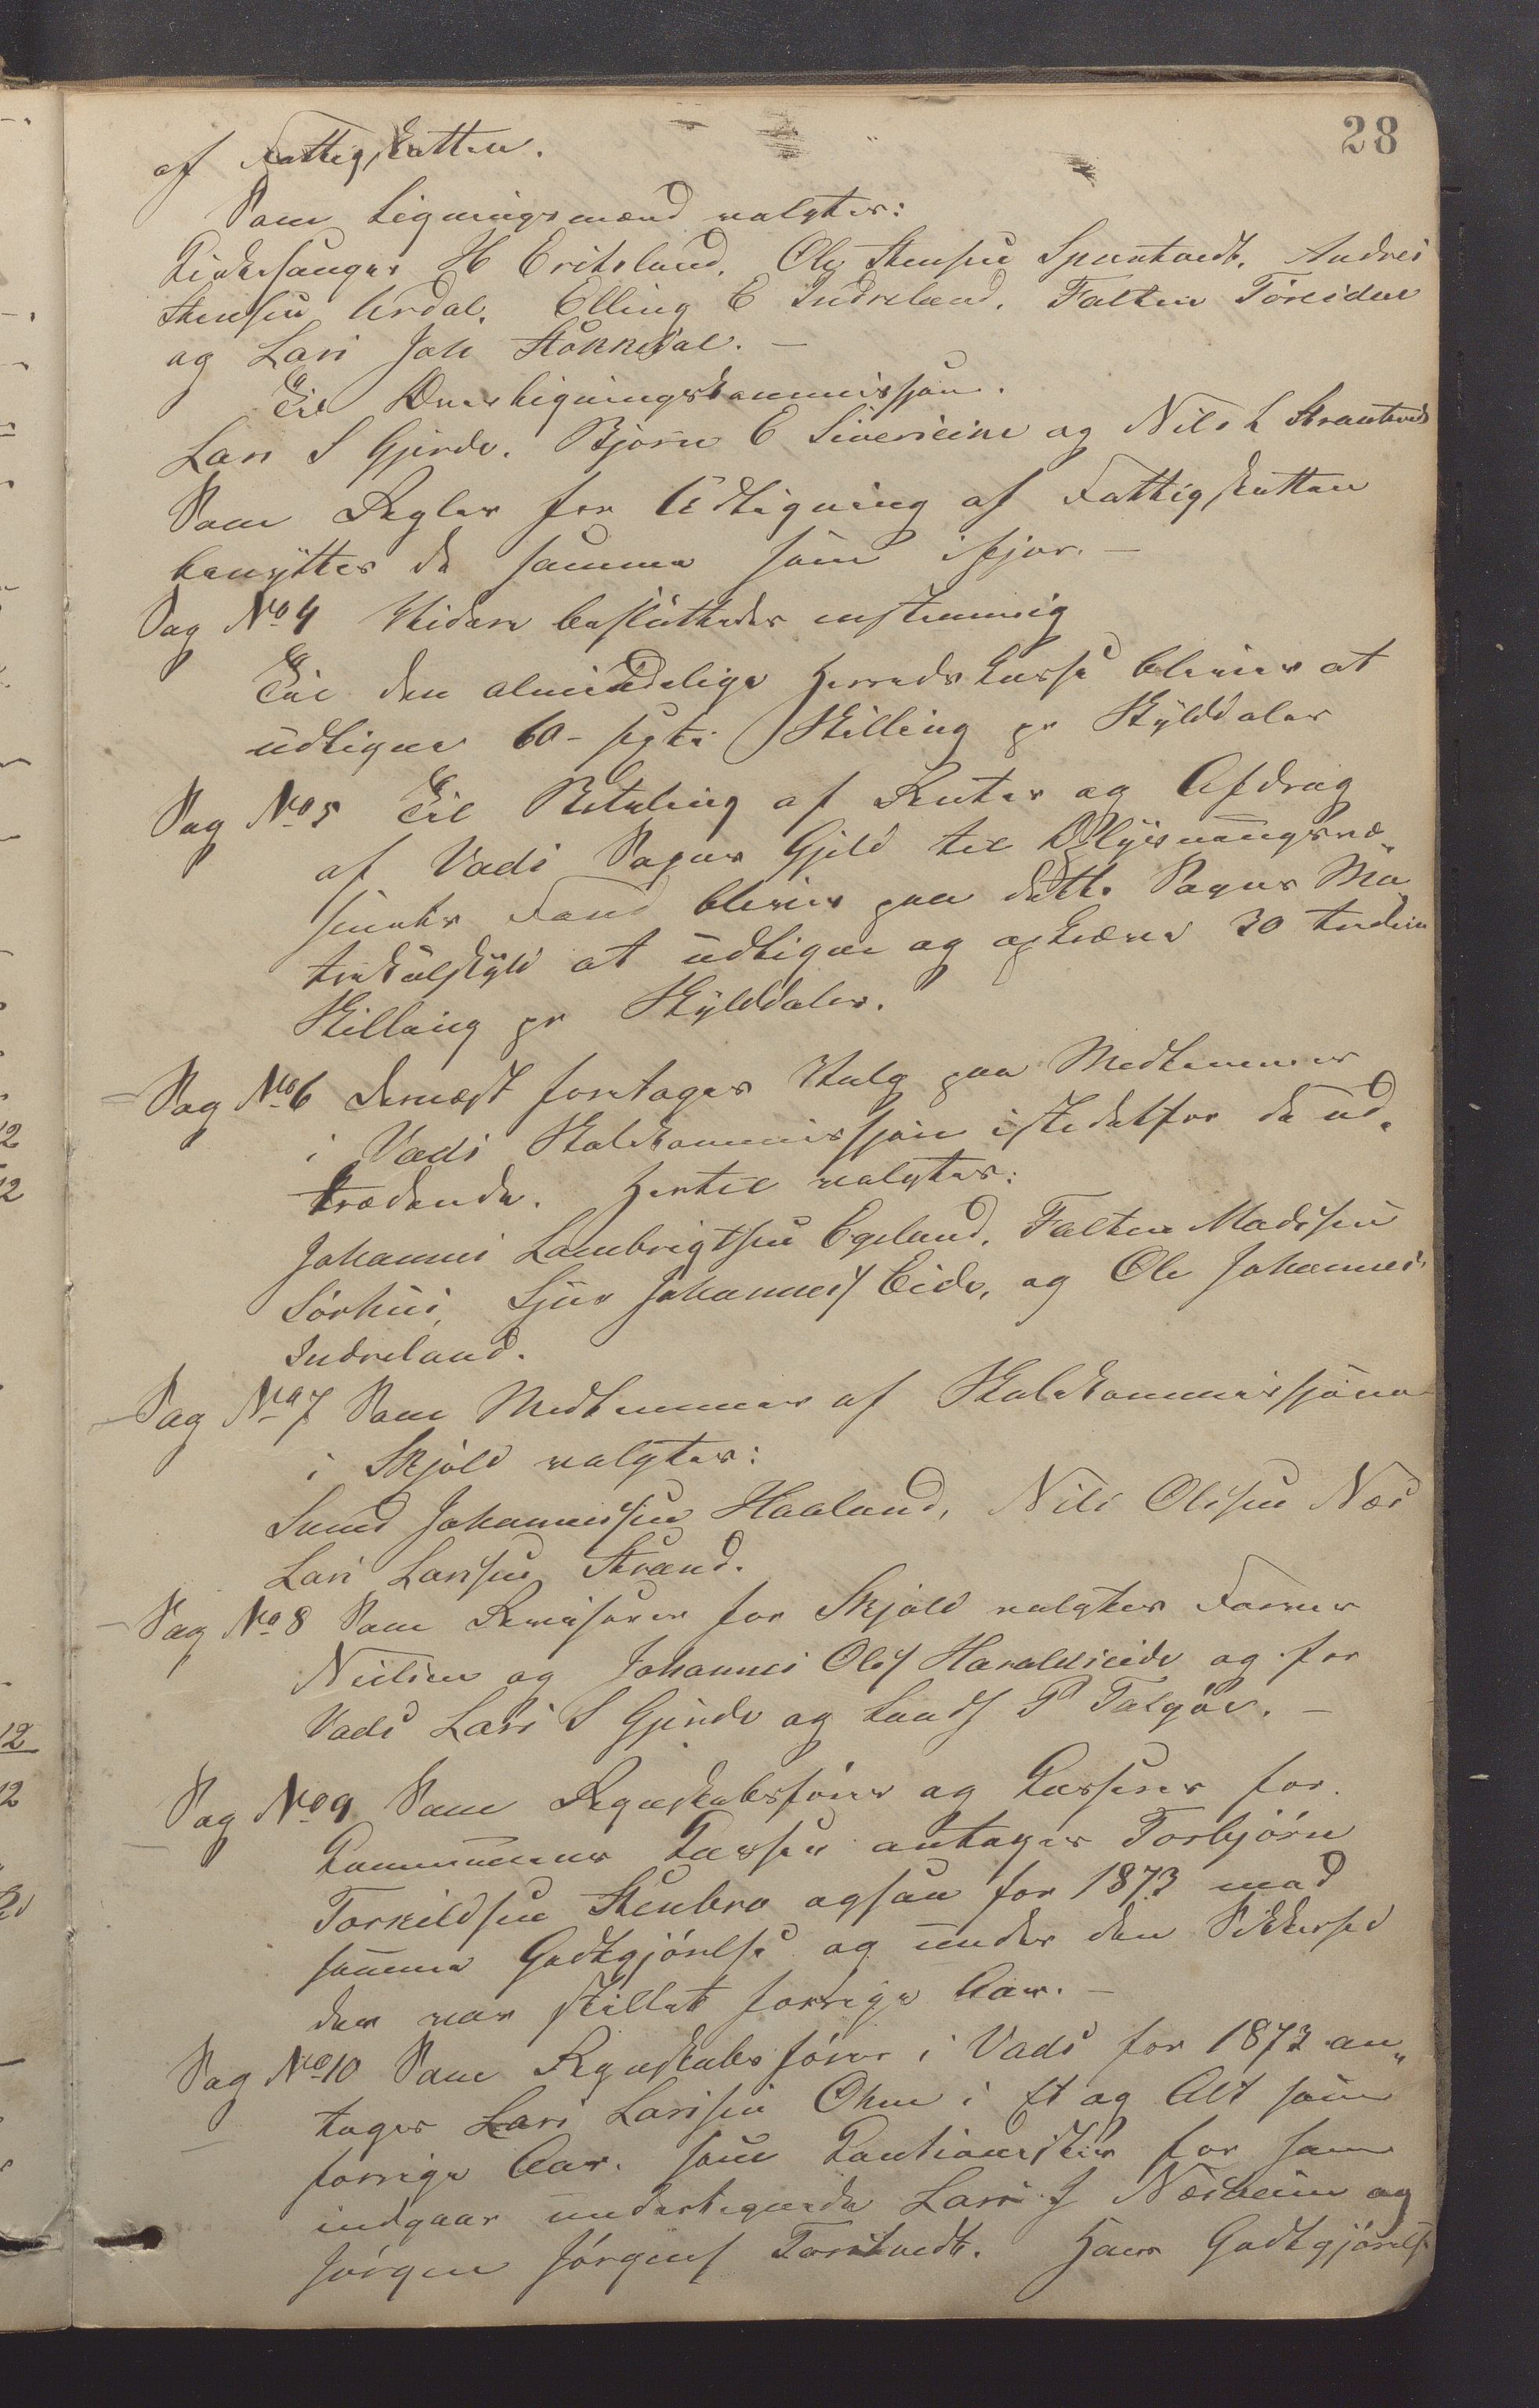 28
af Fattigskatten.
Som Ligningsmænd valgtes:
Kirkesanger H Eriksland. Ole Stensen Spantvedt. Andres
Stensen Urdal. Elling E Indreland. Falten Töreiden
og Lars Joh Stokkedal. —
Til Overligningskommissjon.
Lars S Gjerde. Bjørn E Sivericine og Nils L Strandvedt
Som Regler for Udligning af Fattigskatten
benyttes de samme som ifjor. —
Sag No 4 Videre besluttedes enstemmig
Til den almindelige Herreds Kasse bliver at
udligne 60 – segti Skilling pr Skylddaler
Sag No 5 Til Betaling af Renter og Afdrag
af Vads Sogns Gjeld til Oplysningsvæ„
senets Fond bliver paa dette Sogns Ma
trikulskyld at udligne og opkræve 30 tredive
Skilling pr Skylddaler.
— Sag No 6 Dernæst foretages Valg paa Medlemmer
i Vads Skolekommissjon istedetfor de ud„
trædende. Hertil valgtes:
Johannes Lambrigtsen Egeland, Falten Madssen
Sörhus, Sjur Johanness Eide, og Ole Johannes
Indreland.
— Sag No 7 Som Medlemmer af Skolekommissjonen
i Skjold valgtes:
Svend Johannessen Haaland, Nils Olssen Næs
Lars Larssen Strand.
— Sag No 8 Som Revisorer for Skjold valgtes Farver
Nielsen og Johannes Ols Haraldseide og for
Vads Lars S Gjerde og Lands P Talgöe. —
Sag No 9 Som Regnskabsförer og Kasserer for
Kommunens Kasser antages Torbjörn
Torkildsen Stenbro ogsaa for 1873 mod
samme Godtgjörelse og under den Sikkerhed
der var stillet forrige Aar. —
Sag No 10 Som Regnskabsförer i Vads for 1873 an„
tages Lars Larssen Ohm i Et og Alt som
forrige Aar. som Kautionister for ham
indgaar undertegnede Lars J Næsheim og
Jörgen Jörgens Tarstvedt. Hans Godtgjörelse